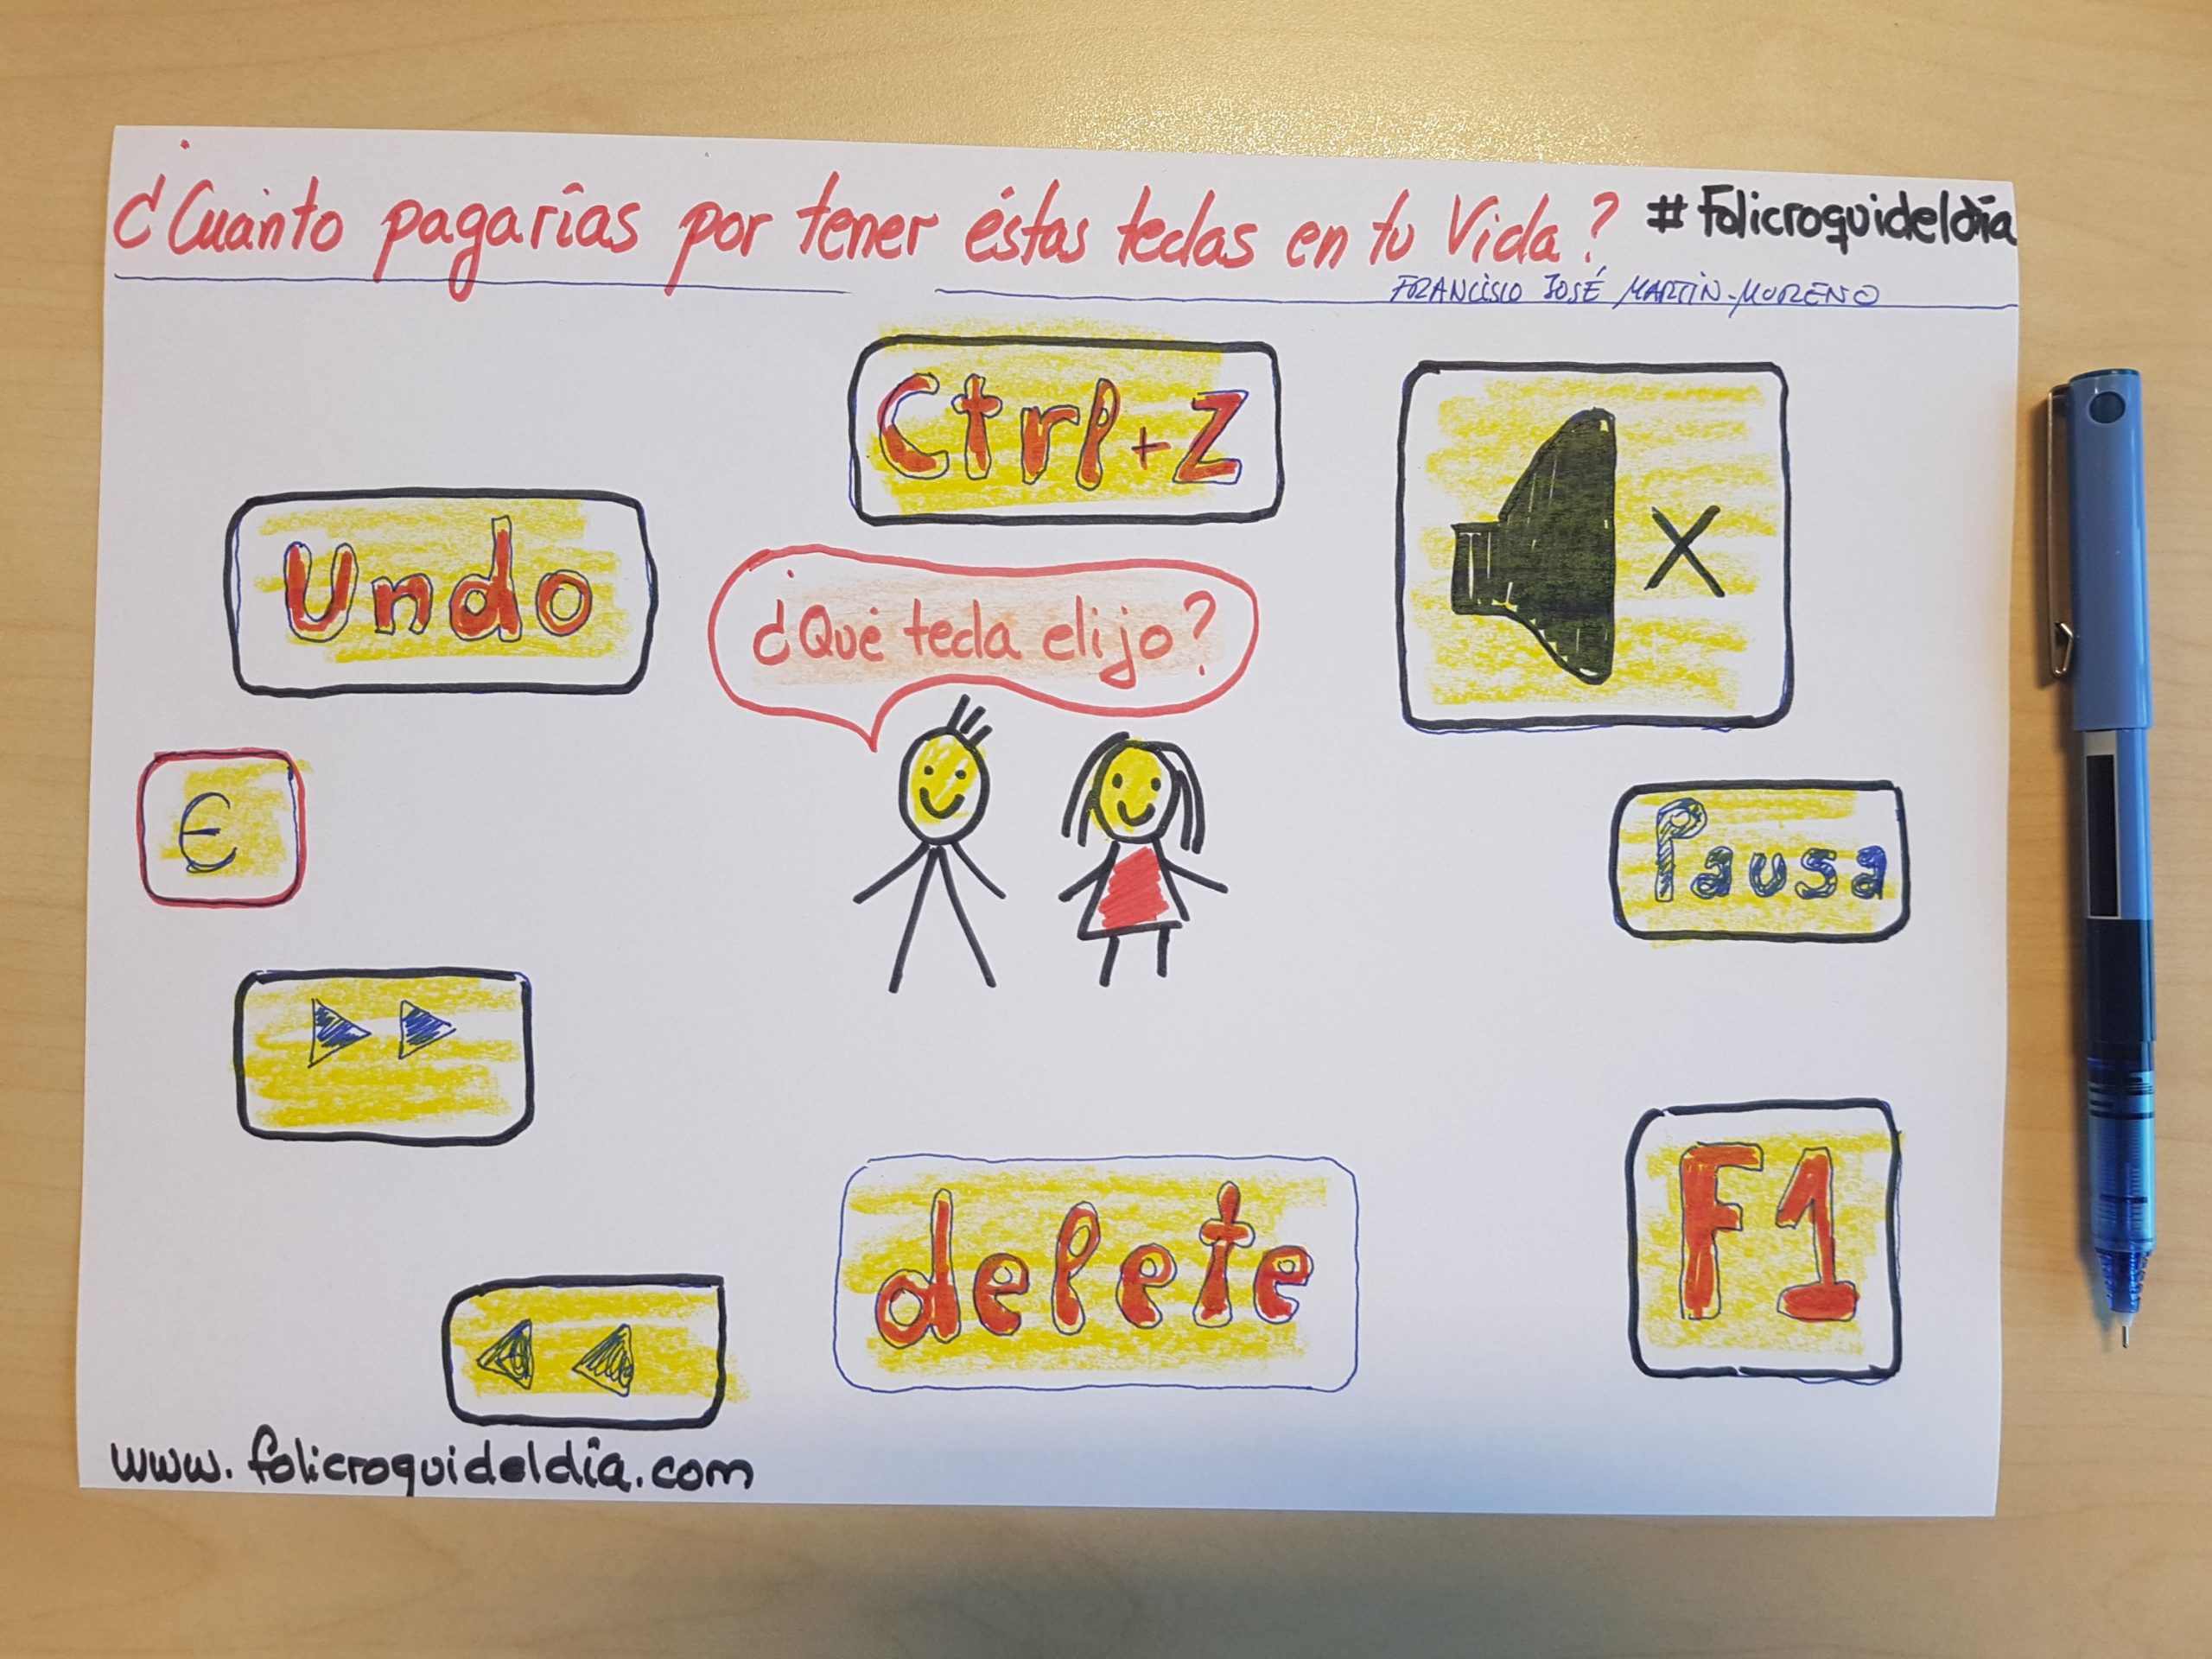 ¿Cuánto pagarías por tener éstas teclas en tu Vida? #Folicroquideldía
FRANCISCO JOSÉ MARTIN-MORENO
Ctrl+Z
X
Undo
¿Qué tecla elijo?
€
Pausa
F1
delete
www.folicroquideldía.com